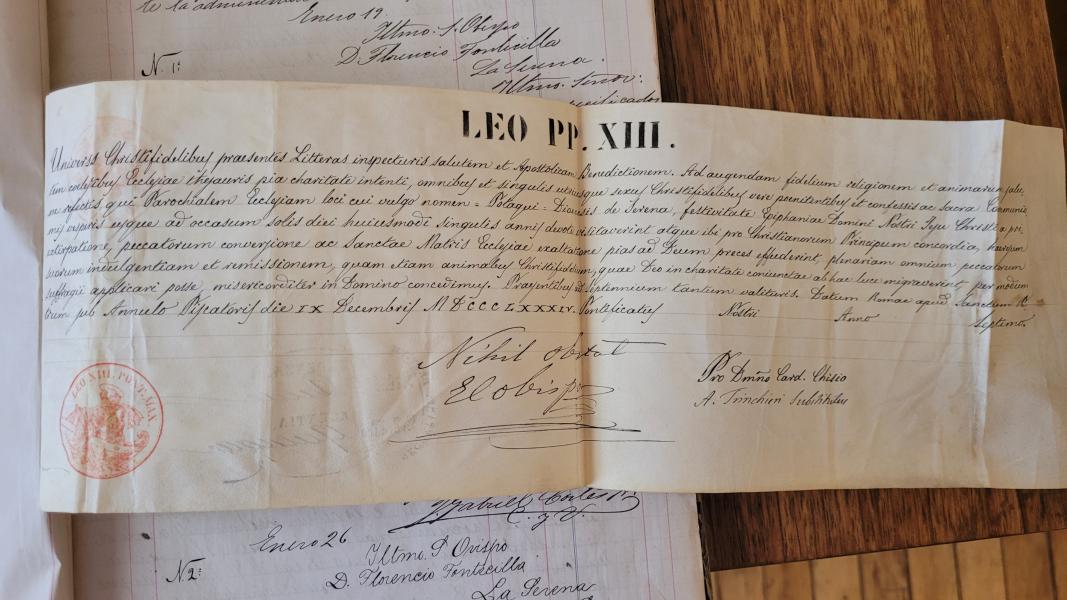 te la administra
Enero 19.
Iltmo. S. Obispo
N. 1:
D. Florencio Fontecilla
La Serena.
Iltmo. Senor:
LEO PP. XIII.
Universis Christifidelibus praesentes Litteras inspecturis salutem et Apostolicam Benedictionem. Ad augendam fidelium religionem et animarum salu
tem coelestibus Ecclesiae thesauris pia charitate intenti, omnibus et singulis utriusque sexus Christifidelibus vere poenitentibus et confessis ac sacra Communio
ne refectis qui Parochialem Ecclesiam loci cui vulgo nomen = Pelaqui = Dioecesis de Serena, festivitate Epiphaniae Domini Nostri Jesu Christi a pri
mis vesperis usque ad occasum solis diei huiusmodi singulis annis devote visitaverint atque ibi pro Christianorum Principum concordia, haeresum
extirpatione, peccatorum conversione ac Sanctae Matris Ecclesiae exaltatione pias ad Deum preces effuderint, plenariam omnium peccatorum
suorum indulgentiam et remissionem, quam etiam animabus Christifidelium, quae Deo in charitate coniunctae ab hac luce migraverint, per modum
suffragii applicari posse, misericorditer in Domino concedimus. Praesentibus ad Septennium tantum valituris. Datum Romae apud Sanctum
trum sub Annulo Piscatoris die IX Decembris MDCCCLXXXIV. Pontificatus Nostri Anno Septimo.
Nihil obstat
El obispo
Pro Dmño Card. Chisio
A. Trinchieri Substitutus
LEO XIII PONT. MAX
Gabriel Cortés
C. y V.
Enero 26
Iltmo. S Ovispo
N. 2:
D. Florencio Fontecilla
La Serena